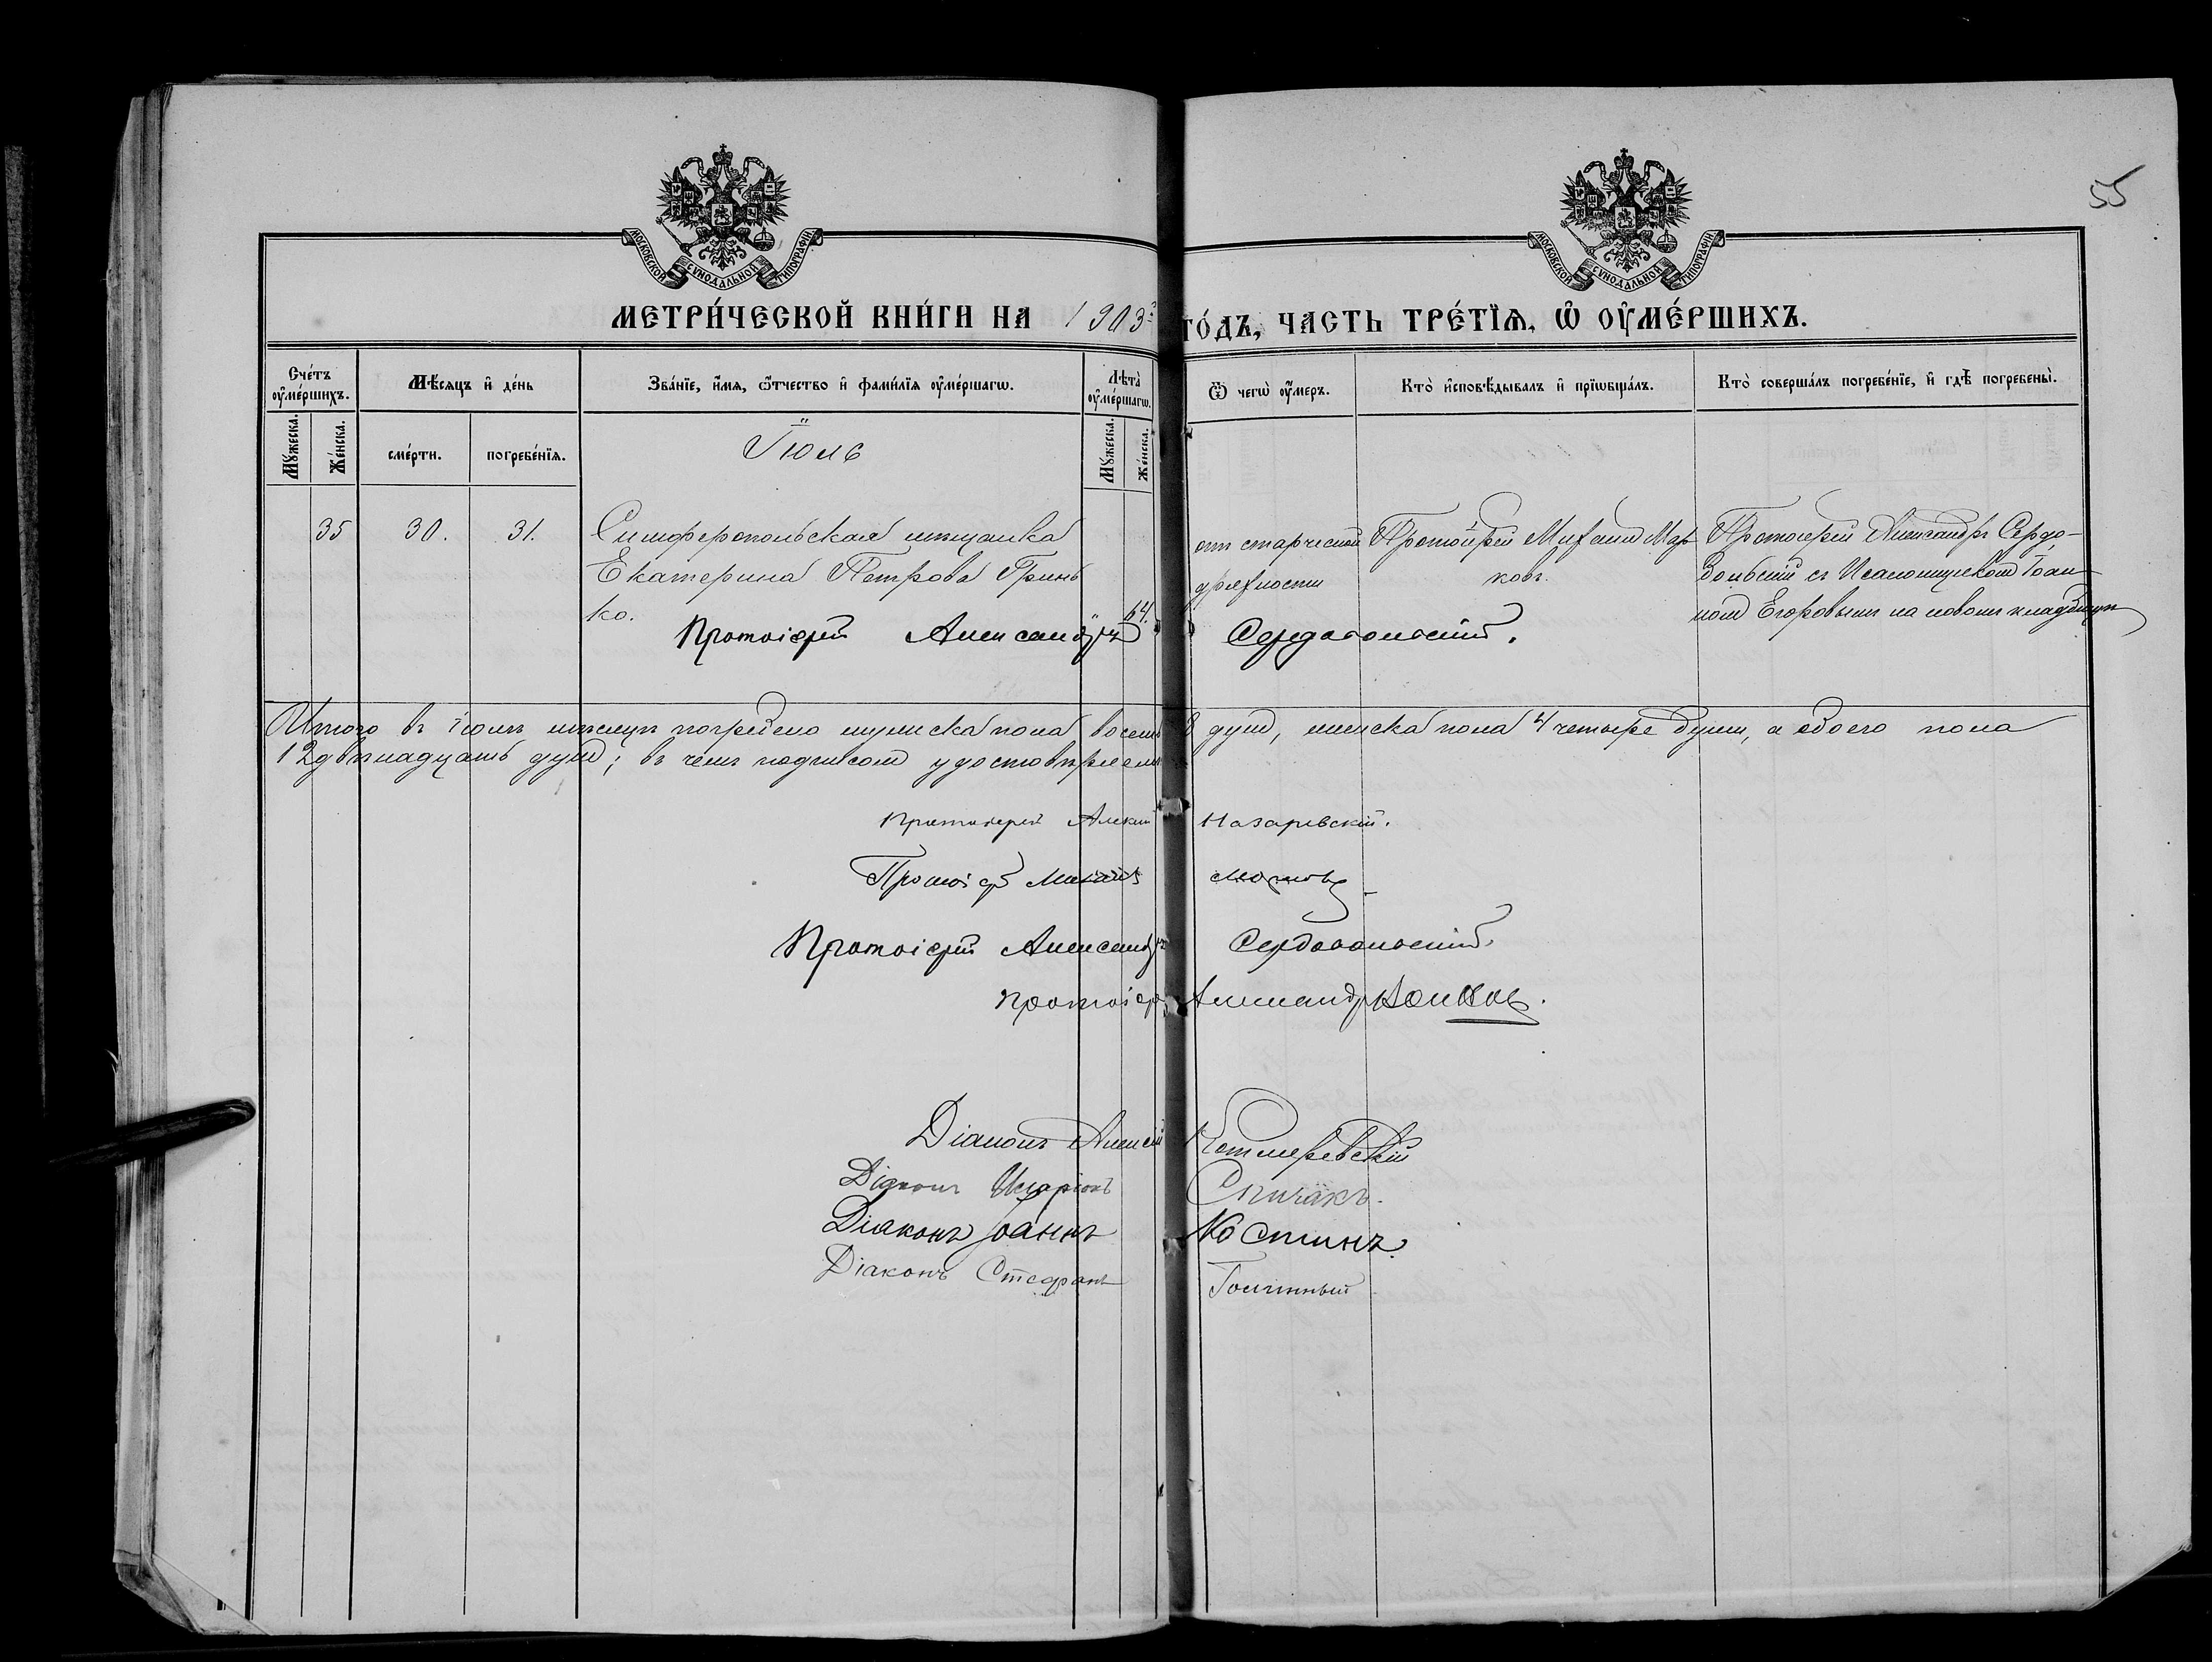 55
МОСКОВСКОЙ СѴНОДАЛЬНОЙ ТИПОГРАФІИ
МОСКОВСКОЙ СѴНОДАЛЬНОЙ ТИПОГРАФІИ
МЕТРИ́ЧЕСКОЙ КНИ́ГИ НА 1903 го́дъ, ЧАСТЬ ТРЕ́ТЇѦ, Ѡ҆ ОУ҆МЕ́РШИХЪ.
Сче́тъ оу҆ме́ршихъ.
Мꙋжеска.
Же́нска.
Мѣ́сяцъ и҆ де́нь
сме́рти.
погребе́нїя.
Зва́нїе, и҆́мя, ѻ҆́тчество и҆ фами́лїя оу҆ме́ршагѡ.
Лѣта̀ оу҆ме́ршагѡ.
Мꙋжеска.
Же́нска.
Ѿ чегѡ̀ оу҆́меръ.
Кто̀ и҆сповѣ́дывалъ и҆ прїѡбща́лъ.
Кто̀ соверша́лъ погребе́нїе, и҆ гдѣ̀ погребены̀.
Іюль
35 30. 31. Симферопольская мѣщанка
Екатерина Петрова Гринь
ко. 64.
отъ старческой
дряхлости
Протоіерей Михаилъ Мар
ковъ.
Протоіерей Александръ Сердо-
больскій съ Псаломщикомъ Іоан
номъ Егоровымъ на новомъ кладбищѣ
Протоіерей Александръ Сердобольскій.
Итого въ іюлѣ мѣсяцѣ погребено мужска пола восемь 8 душъ, женска пола 4 четыре души, а обоего пола
12 двѣнадцать душъ; въ чемъ подписомъ удостовѣряемъ
Протоіерей Алексій Назаревскій.
Протоіер Михаилъ Марковъ
Протоіерей Александръ Сердобольскій.
Протоіер. Александр
Діаконъ Алексій
Діаконъ Иларіонъ Спичакъ.
Діаконъ Іоаннъ Костинъ.
Діаконъ Стефанъ